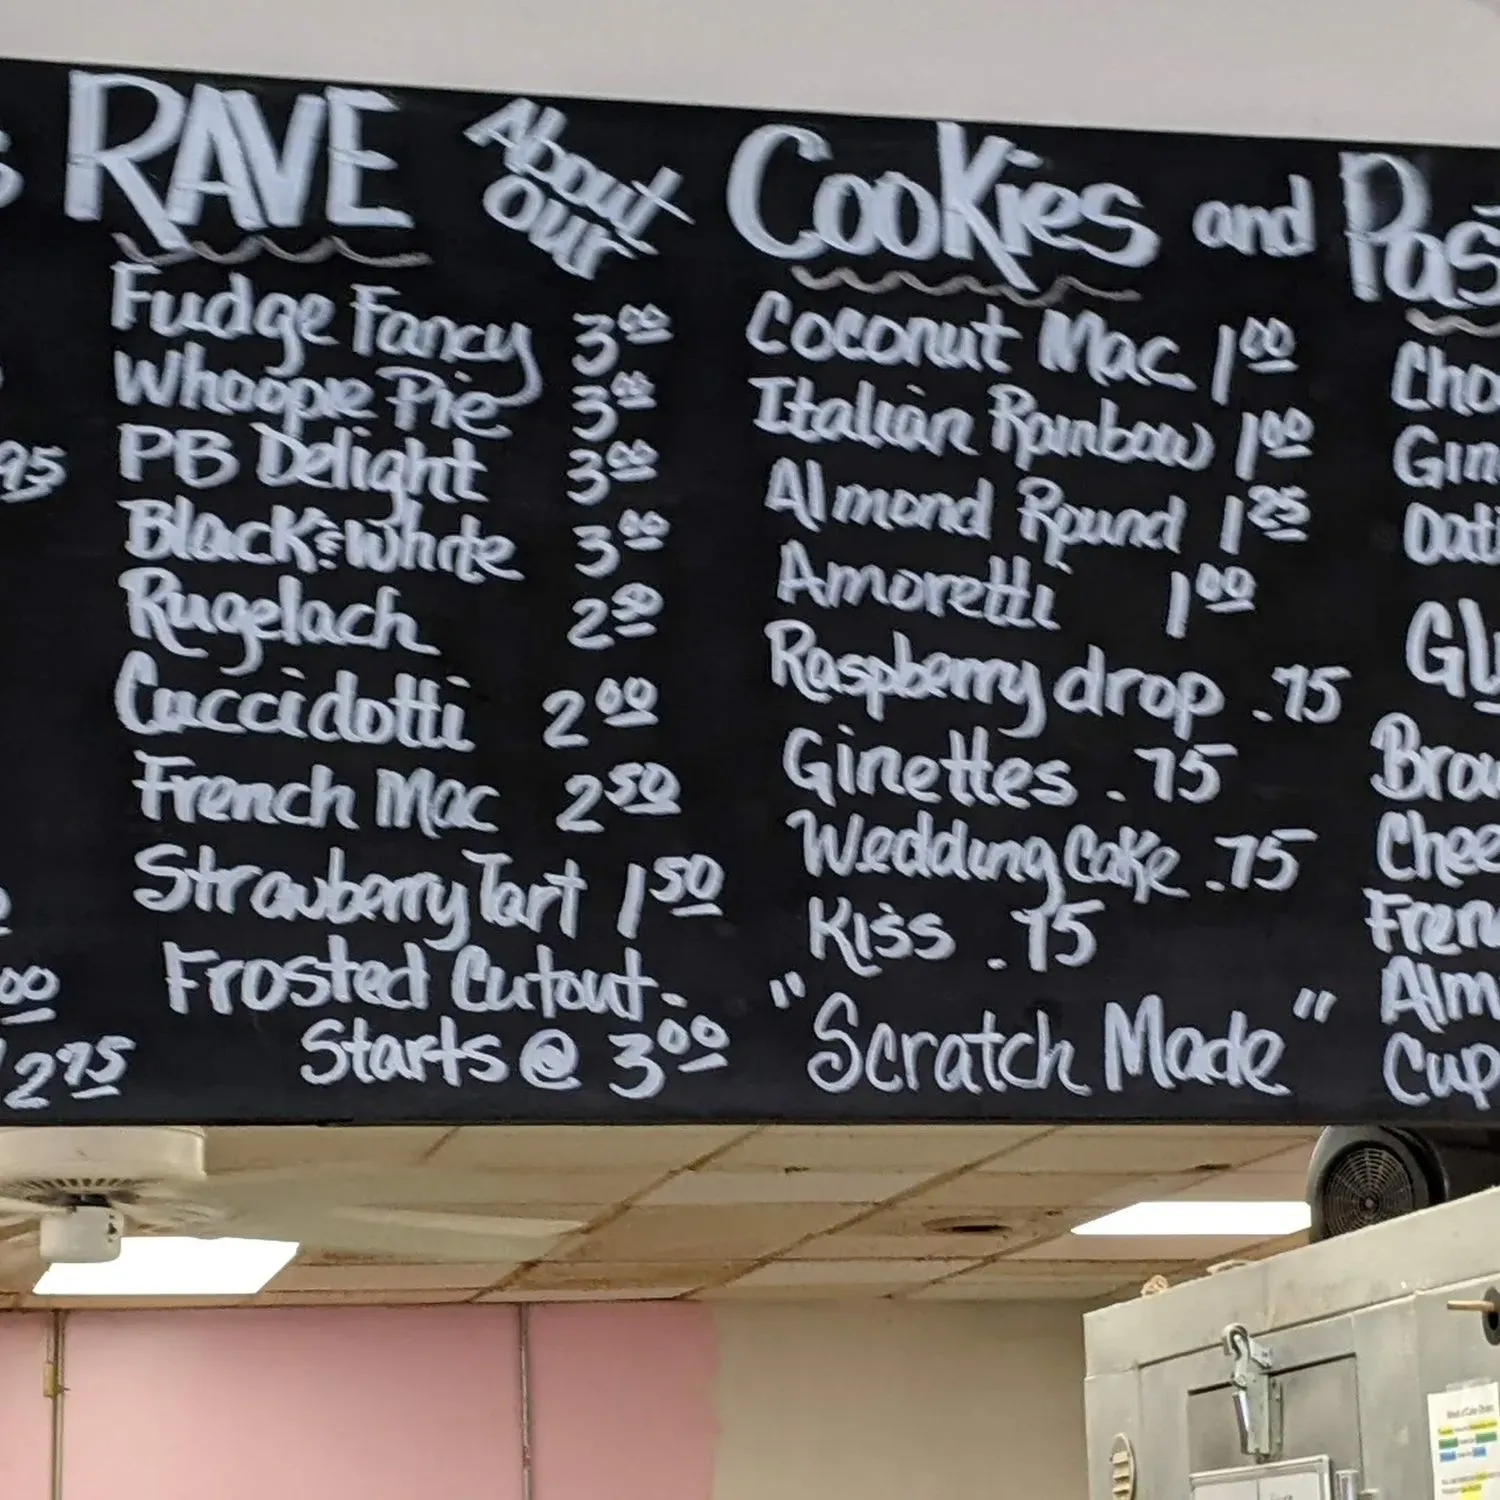 RAVE About Our Cookies and Pas
Fudge Fancy 3.00
Whoopie Pie 3.00
PB Delight 3.00
Black & White 3.00
Rugelach 2.50
Cuccidotti 2.00
French Mac 2.50
Strawberry Tart 1.50
Frosted Cutout -
Starts @ 3.00
Coconut Mac 1.00
Italian Rainbow 1.00
Almond Round 1.25
Amoretti 1.00
Raspberry drop .75
Ginettes .75
Wedding Cake .75
Kiss .75
"Scratch Made"
Cho
Gin
Oat
Glu
Brow
Chee
Fren
Alm
Cup
95
00
2.75